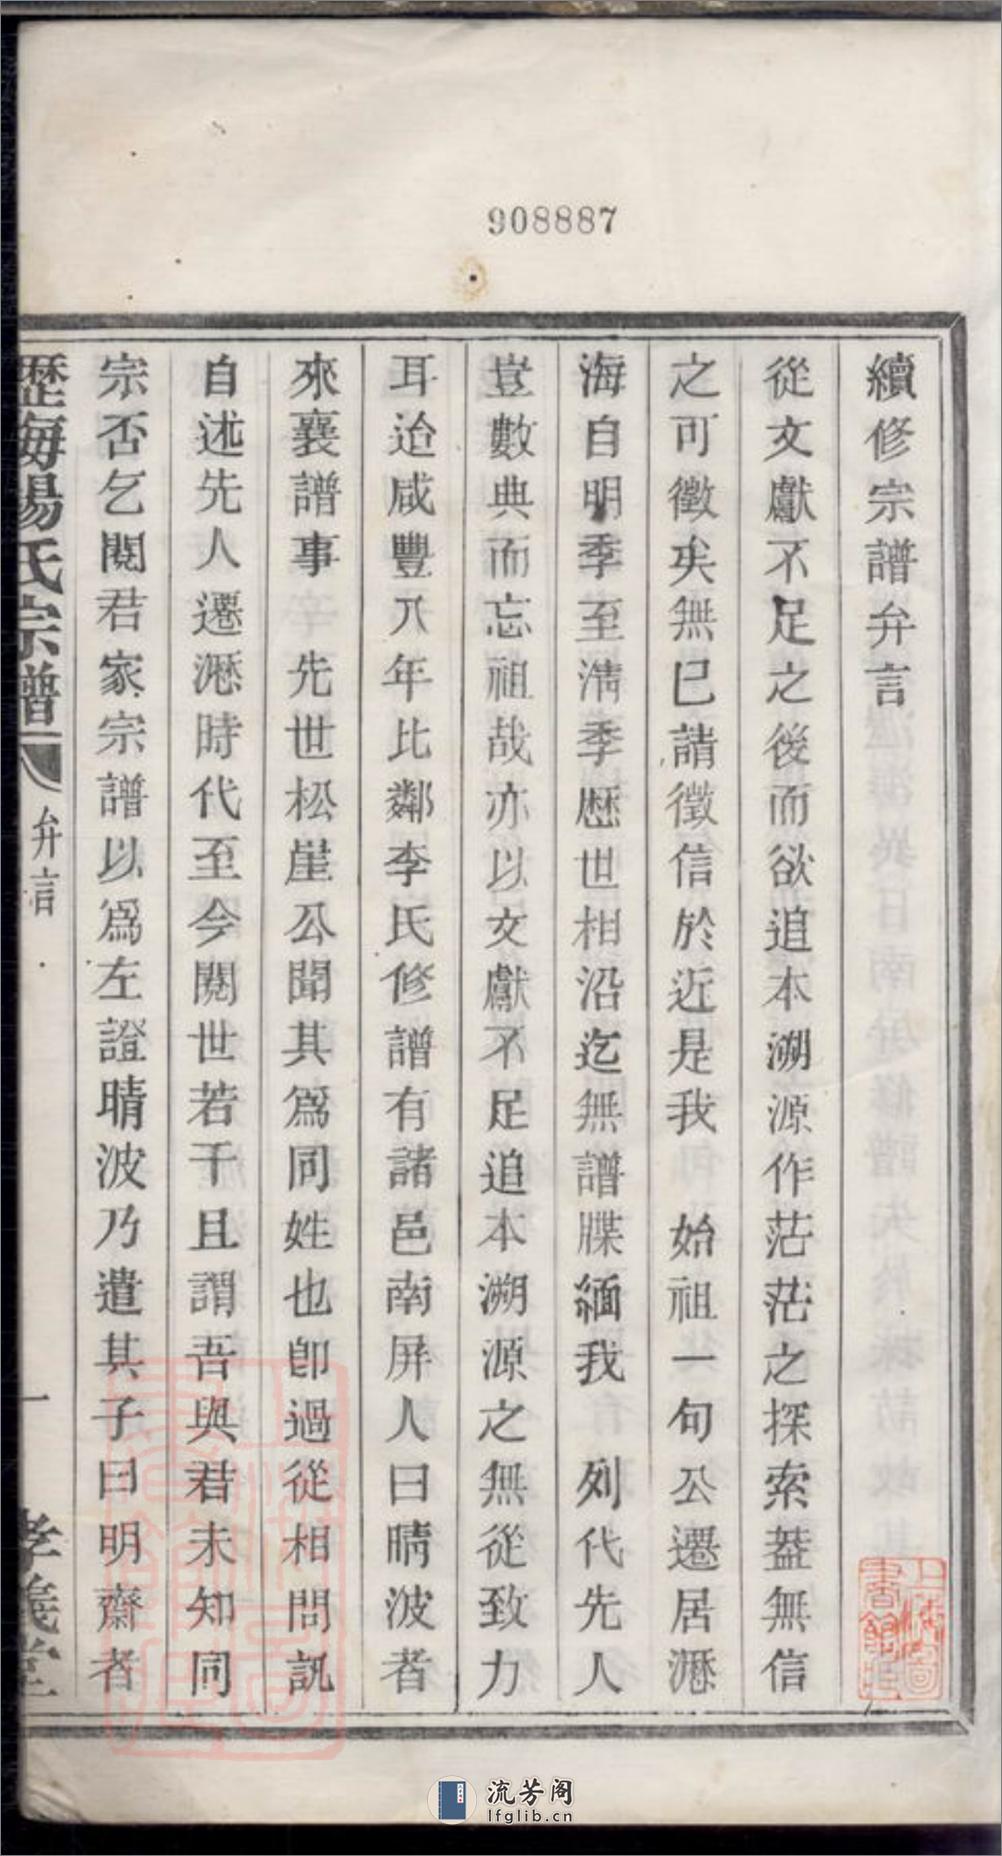 908887
續修宗譜弁言
從文獻不足之後而欲追本溯源作茫茫之探索蓋無信
之可徵矣無已請徵信於近是我　始祖一句公遷居濏
海自明季至淸季歷世相沿迄無譜牒緬我　列代先人
豈數典而忘祖哉亦以文獻不足追本溯源之無從致力
耳迨咸豐八年比鄰李氏修譜有諸邑南屏人曰晴波者
來襄譜事　先世松崖公聞其爲同姓也卽過從相問訊
自述先人遷濏時代至今閱世若干且謂吾與君未知同
宗否乞閱君家宗譜以爲左證晴波乃遣其子曰明齋者
歷海楊氏宗譜
弁言
一
孝義堂
流芳阁
lfglib.cn